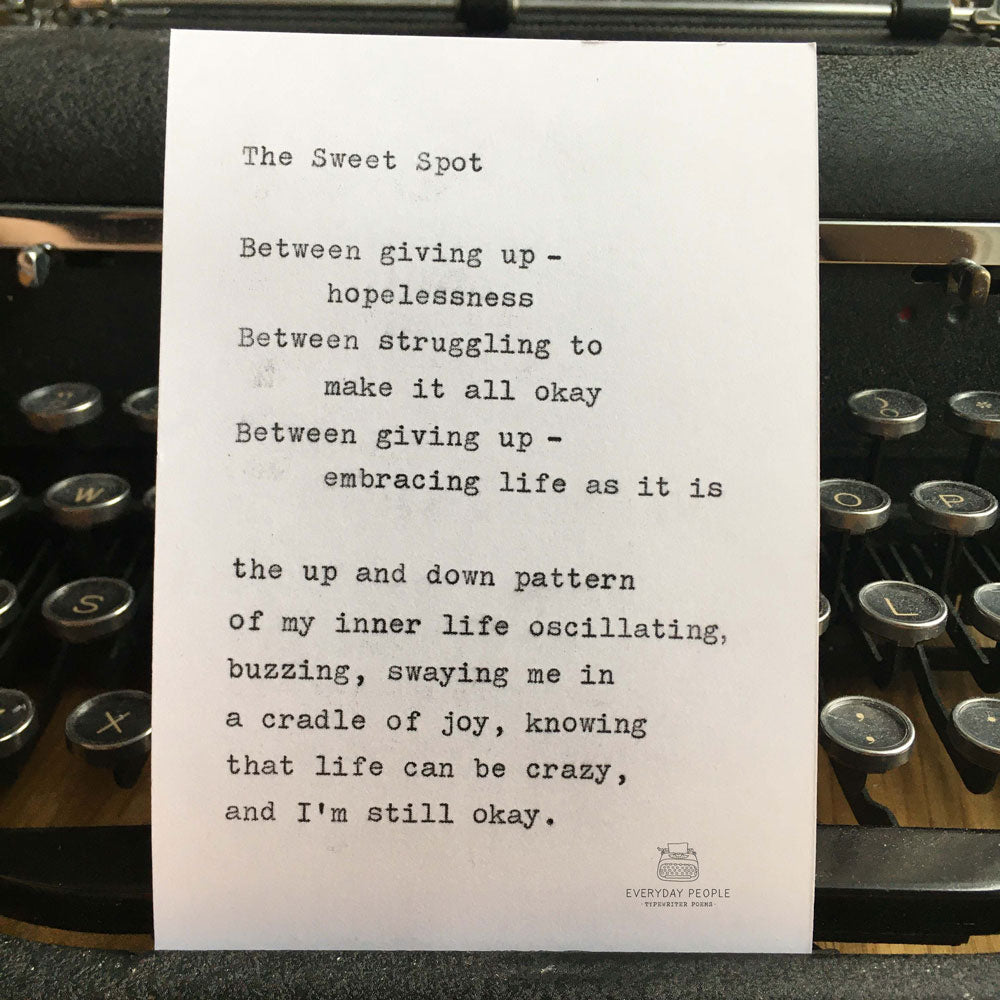 The Sweet Spot
Between giving up -
hopelessness
Between struggling to
make it all okay
Between giving up -
embracing life as it is
the up and down pattern
of my inner life oscillating,
buzzing, swaying me in
a cradle of joy, knowing
that life can be crazy,
and I'm still okay.
EVERYDAY PEOPLE
-TYPEWRITER POEMS-
W
O
P
S
L
X